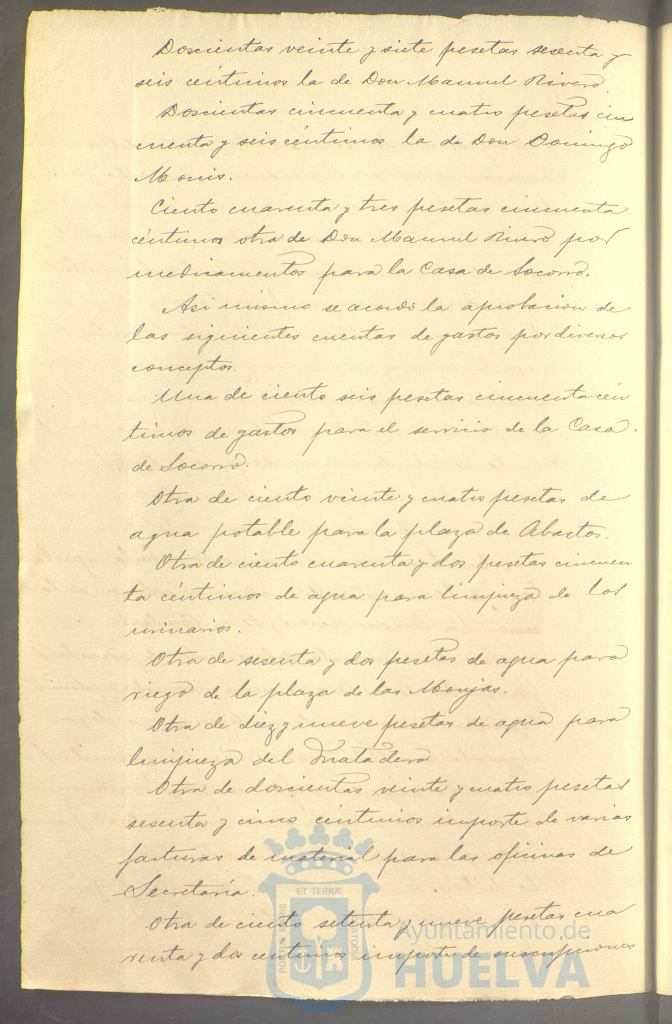 Doscientas veinte y siete pesetas sesenta y
seis céntimos la de Don Manuel Rivero.
Doscientas cincuenta y cuatro pesetas cin
cuenta y seis céntimos la de Don Domingo
Monis.
Ciento cuarenta y tres pesetas cincuenta
céntimos otra de Don Manuel Rivero por
medicamentos para la Casa de Socorro.
Asi mismo se acordó la aprobacion de
las siguientes cuentas de gastos por diversos
conceptos.
Una de ciento seis pesetas cincuenta cén
timos de gastos para el servicio de la Casa
de Socorro.
Otra de ciento veinte y cuatro pesetas de
agua potable para la plaza de Abastos.
Otra de ciento cuarenta y dos pesetas cincuen
ta céntimos de agua para limpieza de los
urinarios.
Otra de sesenta y dos pesetas de agua para
riego de la plaza de las Monjas.
Otra de diez y nueve pesetas de agua para
limpieza del Matadero
Otra de doscientas veinte y cuatro pesetas
sesenta y cinco céntimos importe de varias
facturas de material para las oficinas de
Secretaría.
Otra de ciento setenta y nueve pesetas cua
renta y dos centimos importe de suscripciones
PORTUS MARIS ET TERRÆ CUSTODIA
Ayuntamiento de
HUELVA